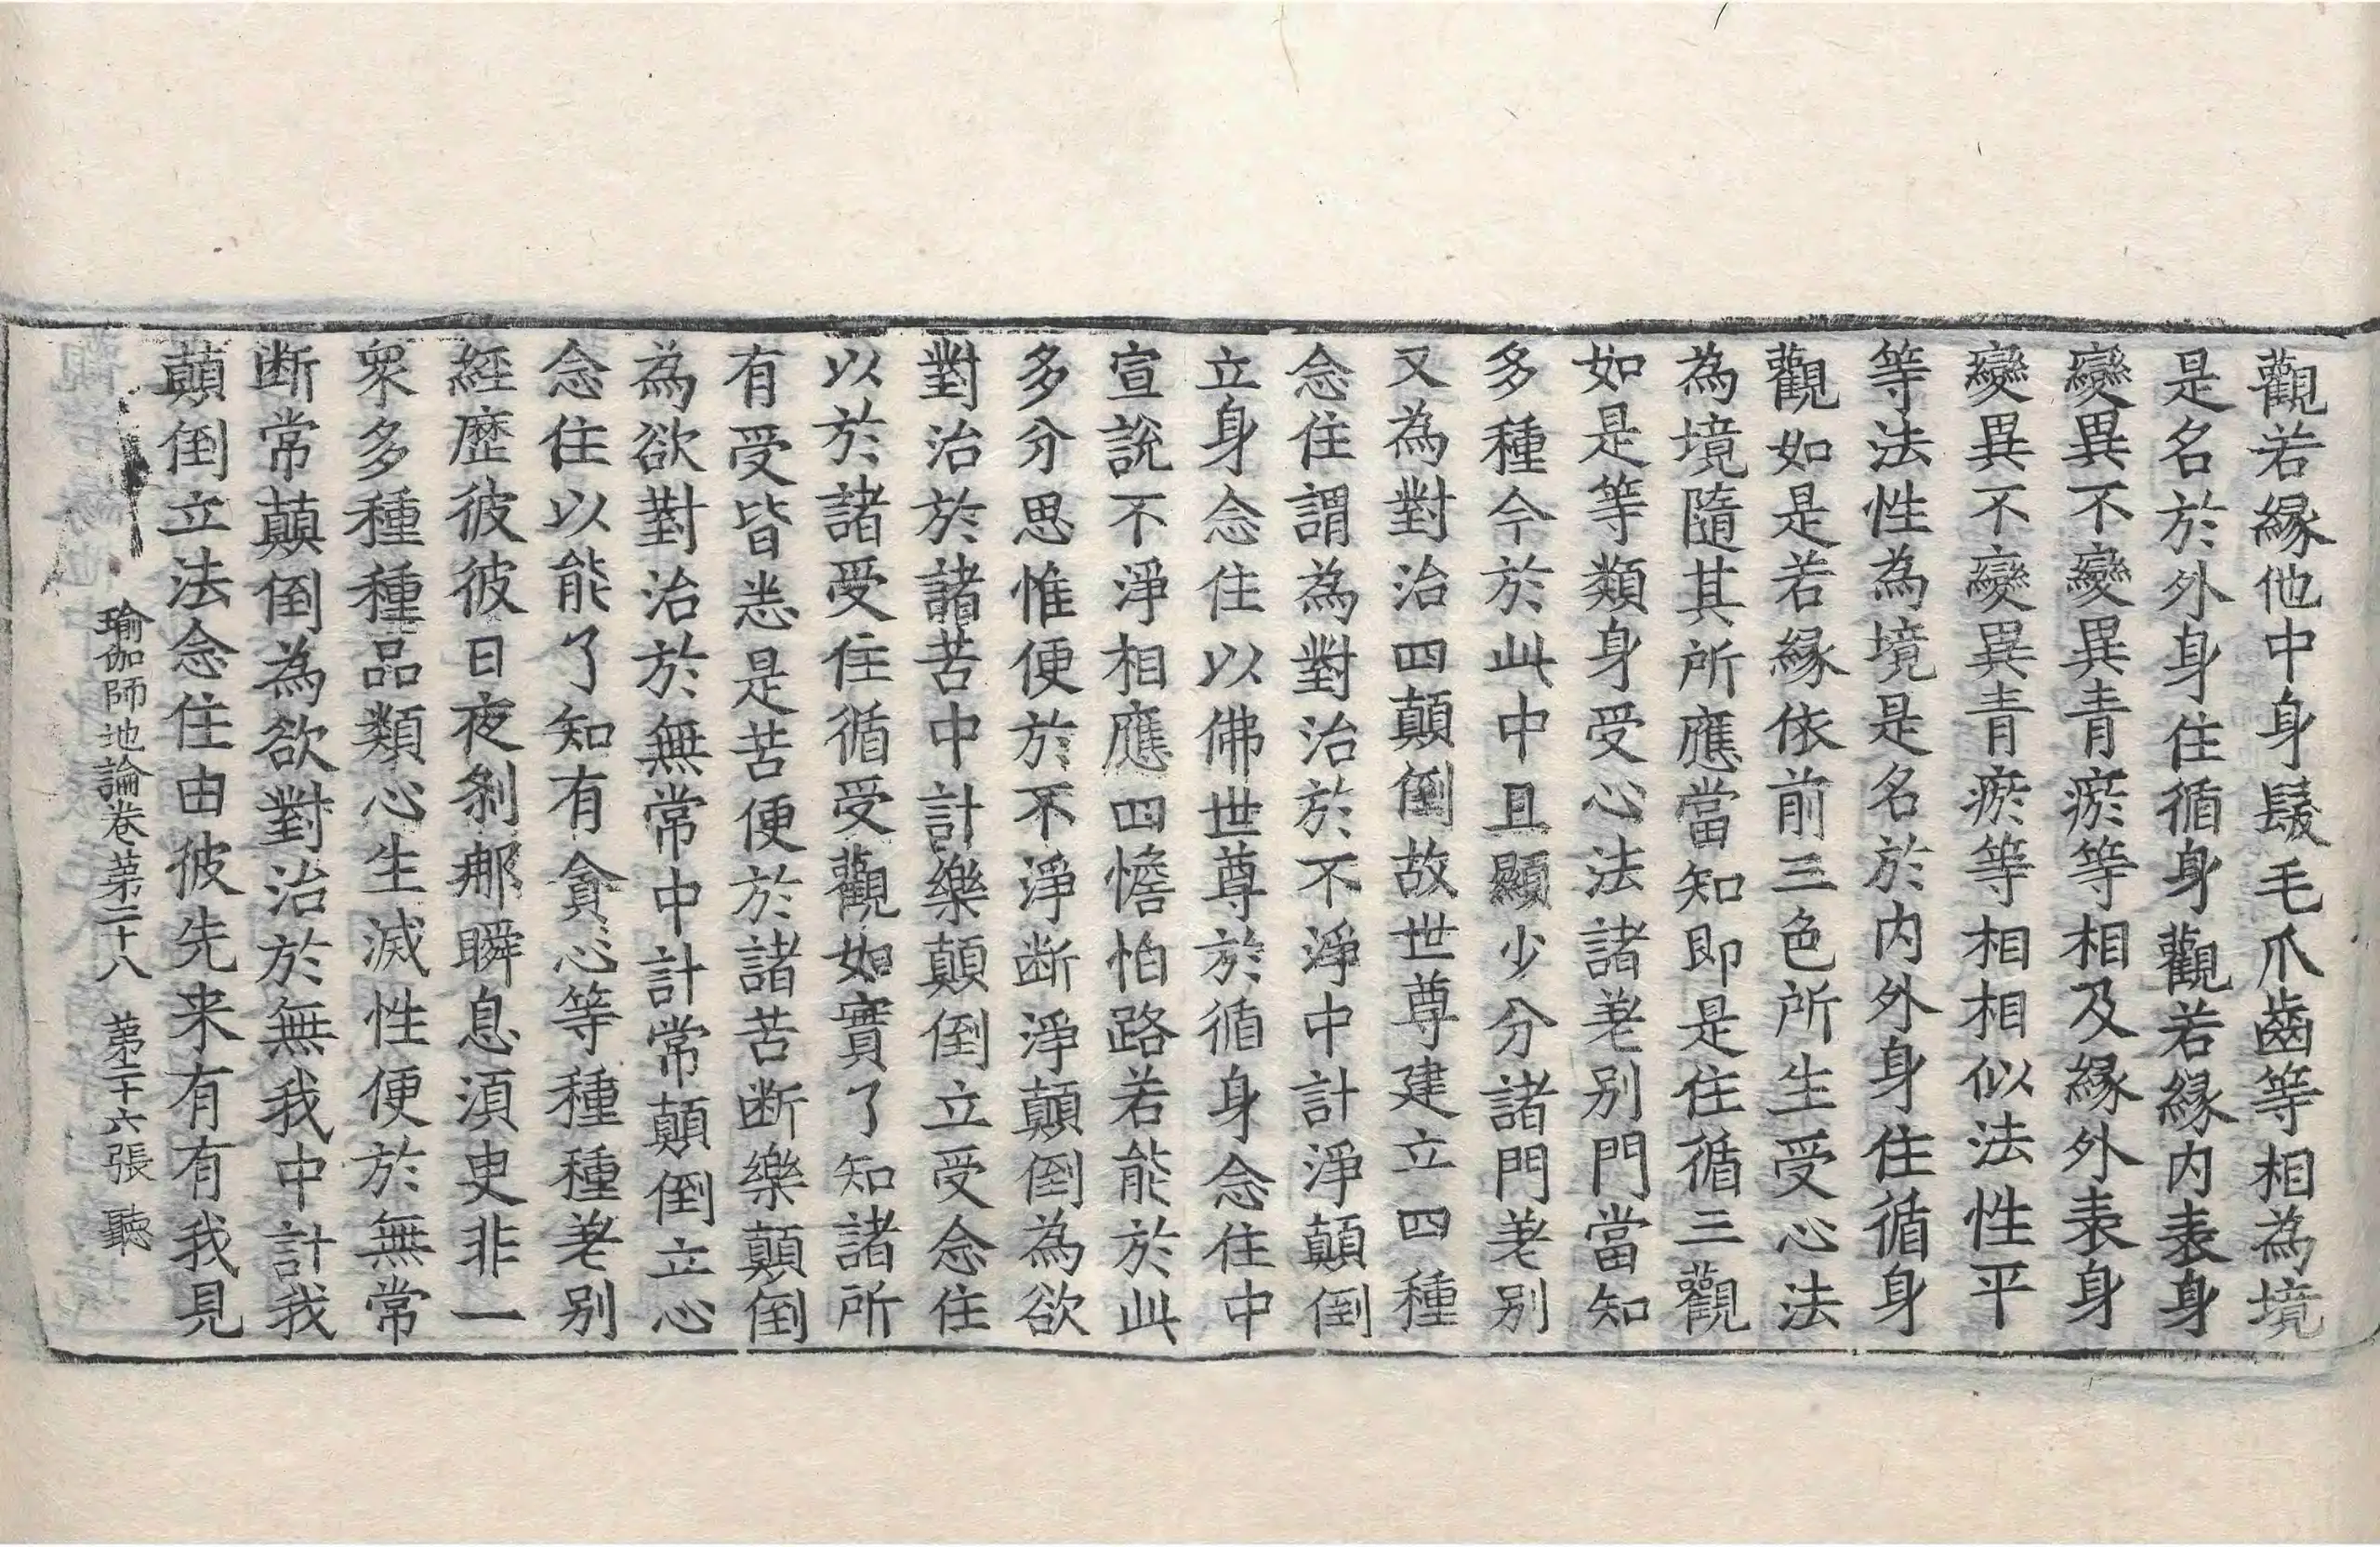 觀若縁他中身髮毛爪齒等相為境
是名於外身住循身觀若縁内表身
變異不變異青瘀等相及縁外表身
變異不變異青瘀等相相似法性平
等法性為境是名於内外身住循身
觀如是若縁依前三色所生受心法
為境隨其所應當知即是住循三觀
如是等類身受心法諸差别門當知
多種今於此中且顯少分諸門差别
又為對治四顛倒故世尊建立四種
念住謂為對治於不淨中計淨顛倒
立身念住以佛世尊於循身念住中
宣說不淨相應四憺怕路若能於此
多分思惟便於不淨断淨顛倒為欲
對治於諸苦中計樂顛倒立受念住
以於諸受住循受觀如實了知諸所
有受皆悉是苦便於諸苦断樂顛倒
為欲對治於無常中計常顛倒立心
念住以能了知有貪心等種種差别
經歷彼彼日夜剎那瞬息須臾非一
衆多種種品類心生滅性便於無常
断常顛倒為欲對治於無我中計我
顛倒立法念住由彼先来有有我見
瑜伽師地論卷第二十八 第二十六張 聽